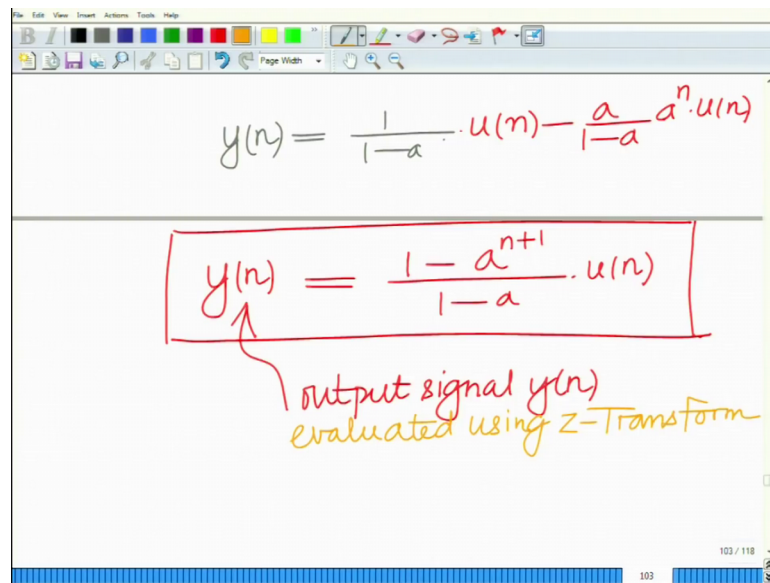 File Edit View Insert Actions Tools Help
B I
Page Width
y(n) = 1/(1-a) · u(n) - a/(1-a) aⁿ · u(n)
y(n) = (1 - aⁿ⁺¹)/(1-a) · u(n)
output signal y(n)
evaluated using z-Transform
103 / 118
103